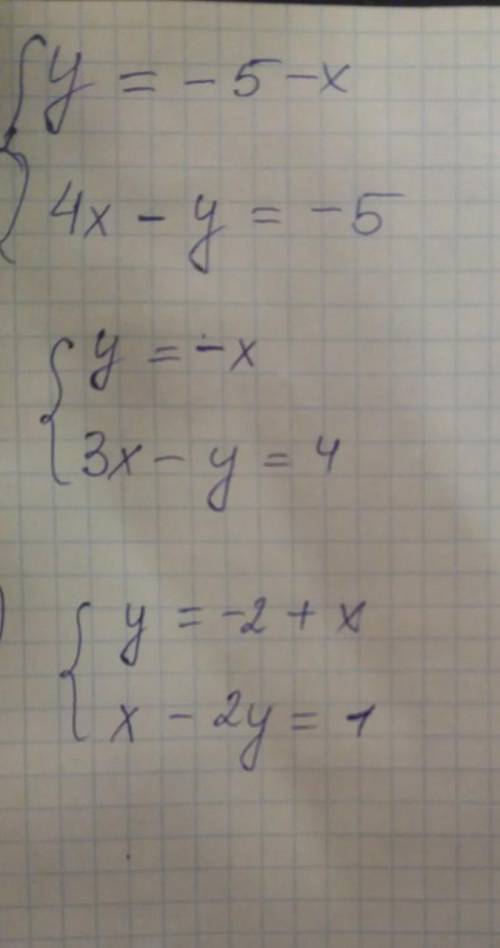 y = -5 - x
4x - y = -5
y = -x
3x - y = 4
) y = -2 + x
x - 2y = 1